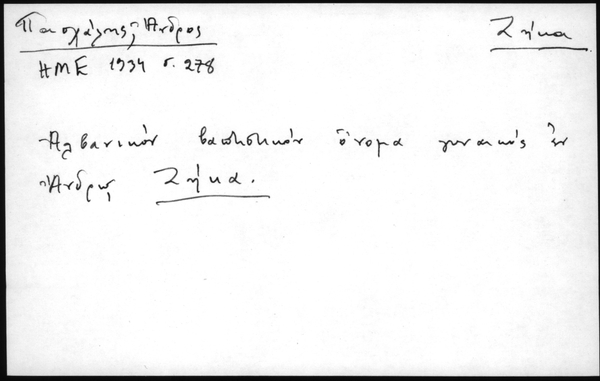 Πασχάλης, Ἄνδρος Ζήκα
ΗΜΕ 1934 σ. 278
Ἀλβανικόν βαπτιστικόν ὄνομα γυναικός ἐν
Ἄνδρῳ Ζήκα.